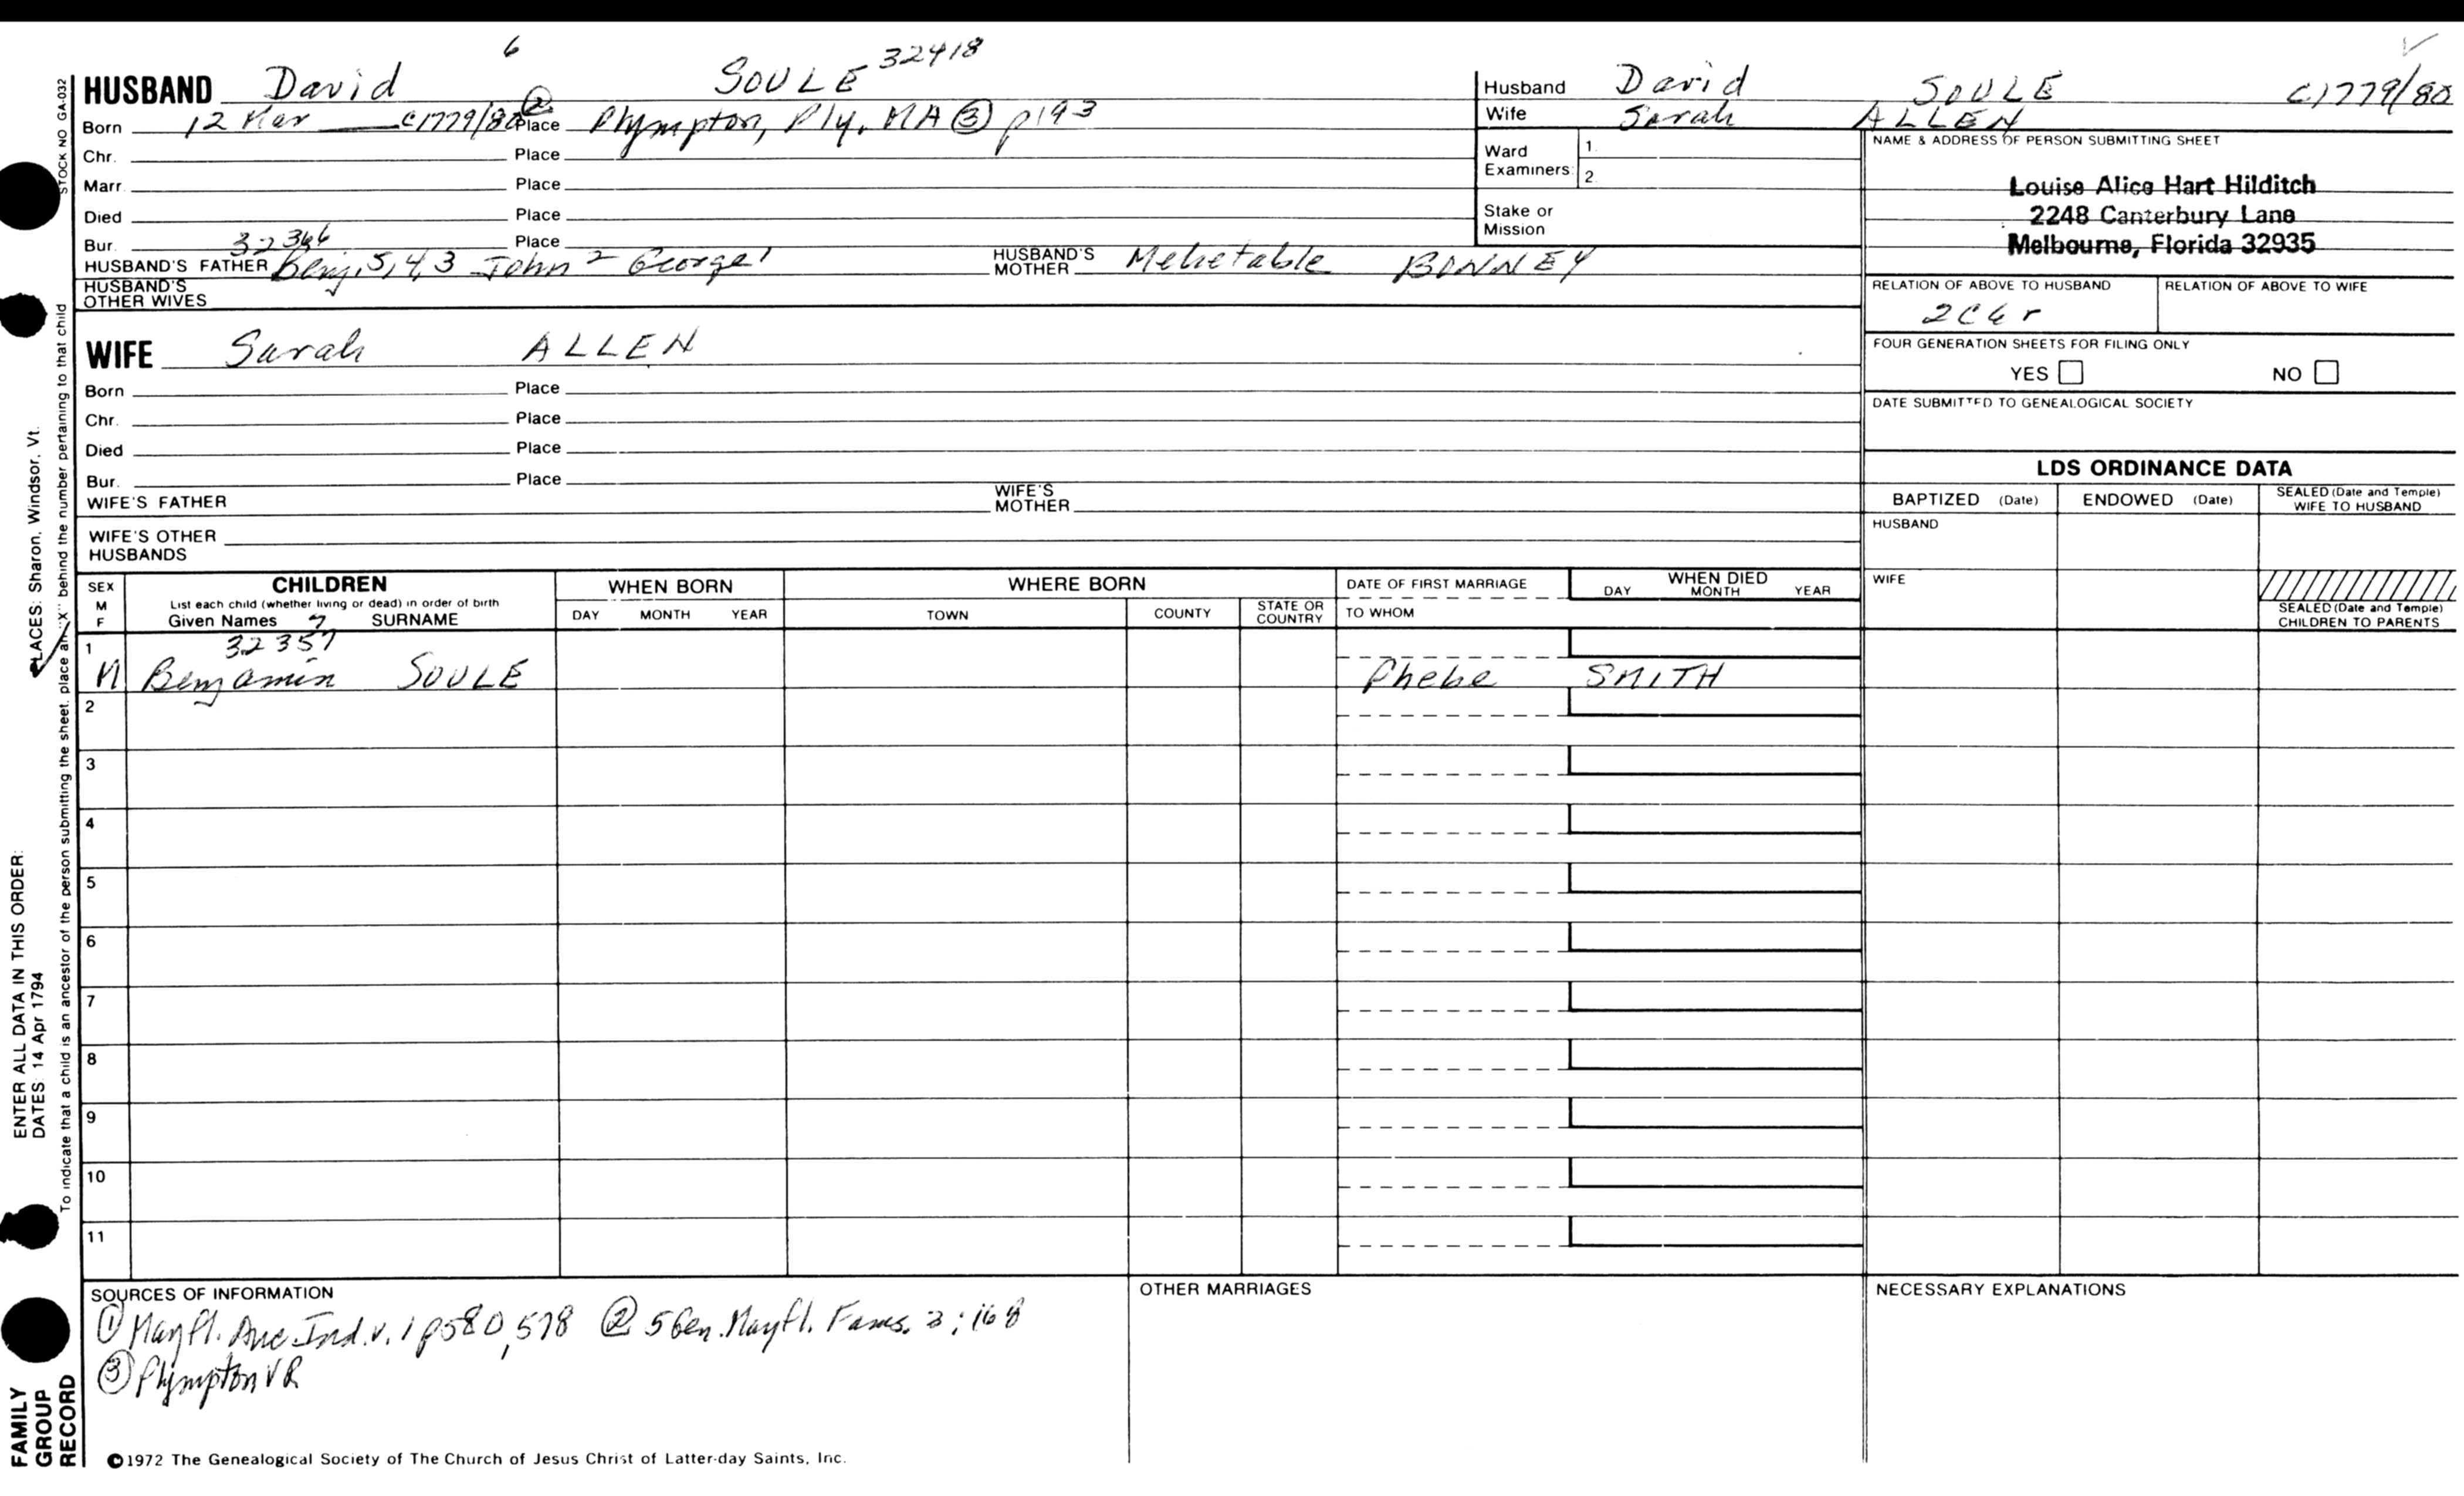 6
HUSBAND David SOULE 32418
Born 12 Mar c1779/80 ② Place Plympton, Ply. MA ③ p193
Chr. Place
Marr. Place
Died Place
Bur. Place
HUSBAND'S FATHER Benj. 5,4,3 John 2 George 1 HUSBAND'S MOTHER Mehetable BONNEY
HUSBAND'S OTHER WIVES
WIFE Sarah ALLEN
Born Place
Chr. Place
Died Place
Bur. Place
WIFE'S FATHER WIFE'S MOTHER
WIFE'S OTHER HUSBANDS
Husband David SOULE c1779/80
Wife Sarah ALLEN
Ward Examiners: 1. 2.
Stake or Mission
NAME & ADDRESS OF PERSON SUBMITTING SHEET
Louise Alice Hart Hilditch
2248 Canterbury Lane
Melbourne, Florida 32935
RELATION OF ABOVE TO HUSBAND RELATION OF ABOVE TO WIFE
2C6r
FOUR GENERATION SHEETS FOR FILING ONLY
YES NO
DATE SUBMITTED TO GENEALOGICAL SOCIETY
LDS ORDINANCE DATA
BAPTIZED (Date) ENDOWED (Date) SEALED (Date and Temple) WIFE TO HUSBAND
HUSBAND
WIFE
SEALED (Date and Temple) CHILDREN TO PARENTS
SEX M F CHILDREN WHEN BORN WHERE BORN DATE OF FIRST MARRIAGE WHEN DIED
List each child (whether living or dead) in order of birth
Given Names 7 SURNAME DAY MONTH YEAR TOWN COUNTY STATE OR COUNTRY TO WHOM DAY MONTH YEAR
32357
1 M Benjamin SOULE Phebe SMITH
2
3
4
5
6
7
8
9
10
11
SOURCES OF INFORMATION
① Mayfl. Anc. Ind. v. 1 p580, 578 ② 5 Gen. Mayfl. Fams. 3:168
③ Plympton VR
OTHER MARRIAGES
NECESSARY EXPLANATIONS
©1972 The Genealogical Society of The Church of Jesus Christ of Latter-day Saints, Inc.
STOCK NO GA-032
To indicate that a child is an ancestor of the person submitting the sheet, place an "X" behind the number pertaining to that child
ENTER ALL DATA IN THIS ORDER:
DATES 14 Apr 1794
PLACES: Sharon, Windsor, Vt.
FAMILY GROUP RECORD